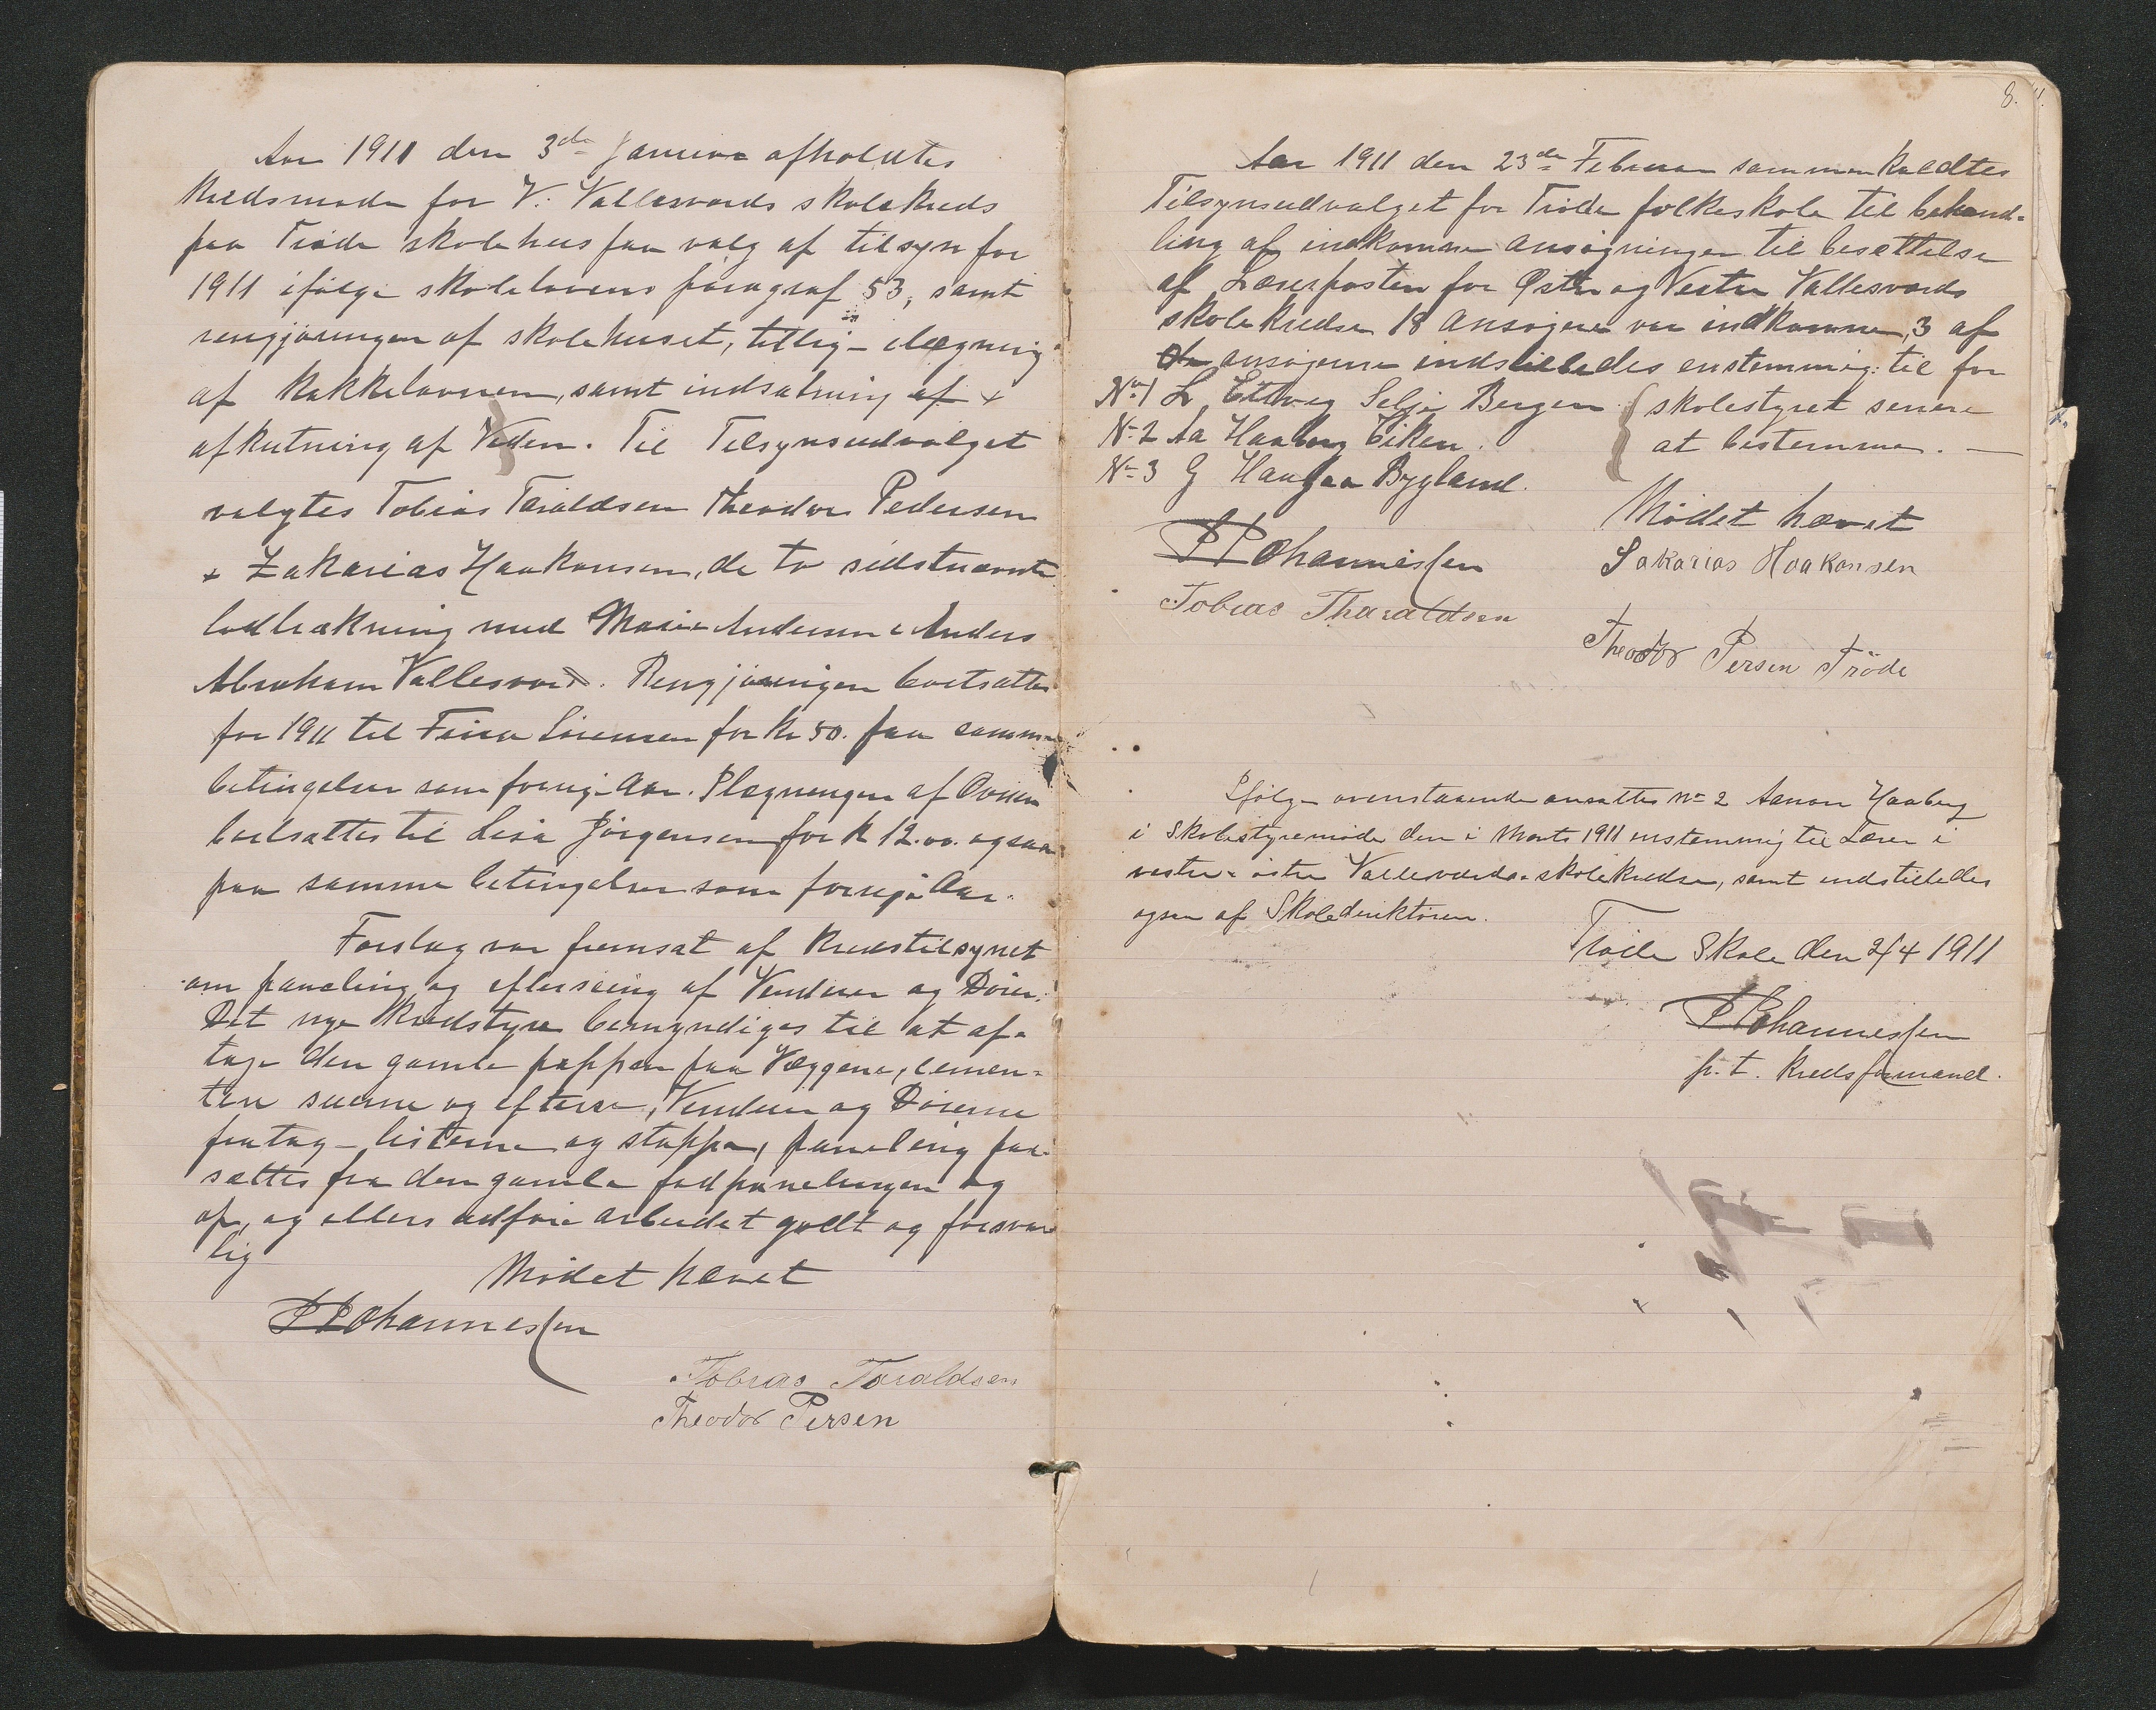 Aar 1911 den 3de Januar afholdtes
Kredsmøde for V. Vallesværds skolekreds
paa Trøde skolehus paa valg af tilsyn for
1911 ifølge skolelovens paragraf 53, samt
rengjøringen af skolehuset, tillig ilægning
af Kakkelovnen, samt indsætning af +
afkutning af Veden. Til Tilsynsudvalget
valgtes Tobias Taraldsen Theodor Pedersen
+ Zakarias Haakonsen, de to sidstnævnte
lodtrækning med Marie Andersen & Anders
Abraham Vallesværd. Rengjøringen bortsattes
for 1911 til Fina Sørensen for Kr 50. paa samme
betingelser som forrig Aar. Ilægningen af Ovnen
bortsattes til Lisa Jørgensen for K 12.00. ogsaa
paa samme betingelser som forrige Aar.
Forslag var fremsat af Kredstilsynet
om paneling og efterseing af Venduer og Dører.
Det nye Kredstyre bemyndiges til at af-
tage den gamle pappen paa Væggene, cemen-
tere suerne og efterse, Venduer og Dørerne
fratag listerne og stoppe, paneling paa-
sættes fra den gamle fodpanelingen og
op, og ellers udføre arbeidet godt og forsvar
lig
Mødet hævet
P Johannessen
Tobias Taraldsen
Theodor Persen
8.
Aar 1911 den 23de Februar sammenkaldtes
Tilsynsudvalget for Trøde folkeskole til behand-
ling af indkomne Ansøgninger til besættelse
af Lærerposten for Østre og Vestre Vallesværds
skolekredse 18 Ansøgere var indkomne, 3 af
de ansøgerne indstilledes enstemmig til for
No 1 L Selje Bergen { skolestyret senere
No 2 Aa Haaberg Eiken. at bestemme.
No 3 G Haugaa Bygland.
Mødet hævet
P Johannessen Sakarias Haakonsen
Tobias Tharaldsen
Theodor Persen Tröde
Ifølge ovenstaaende ansattes No 2 Aanon Haaberg
i Skolestyremøde den i Marts 1911 enstemmig til Lærer i
vestre & østre Vallesværds skolekredse, samt indstilledes
ogsaa af Skoledirektøren.
Trøde Skole den 2/4 1911
P Johannessen
p. t. Kredsformand.